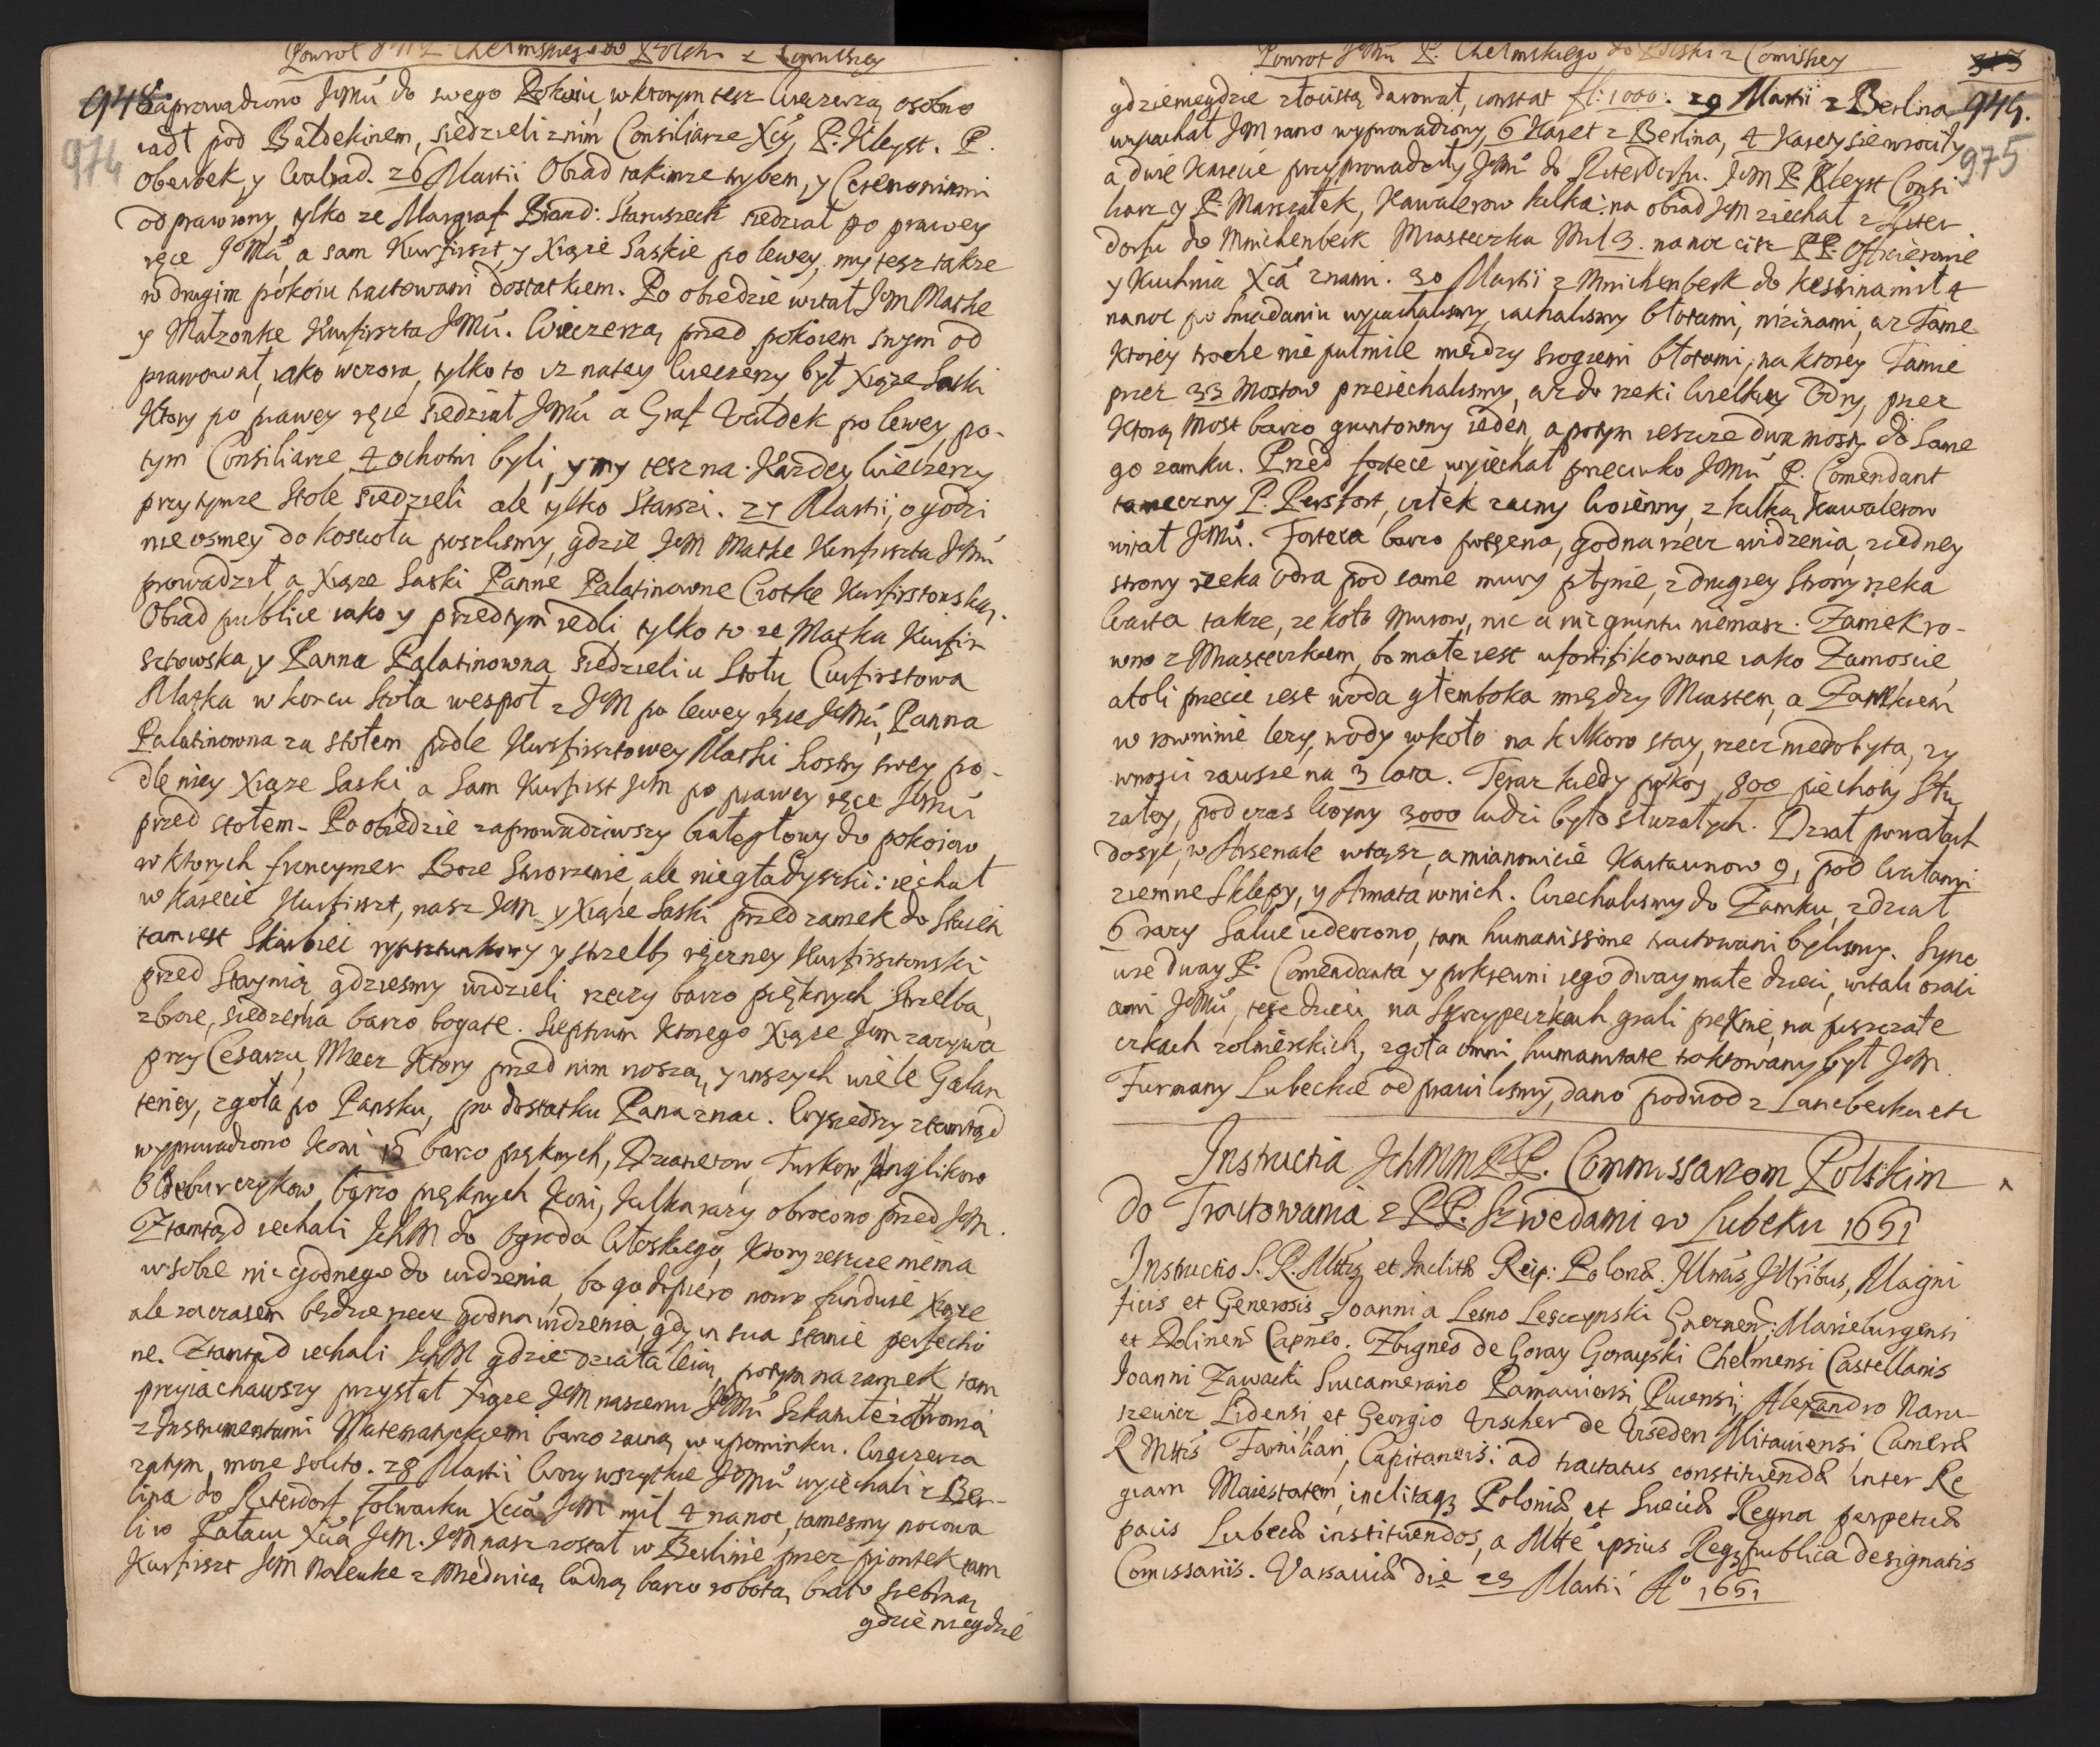 Powrot JMP. Chełmskiego do Polski z Comissiey
948
974
Zaprowadzono JeMu do swego Pokoiu, w ktorym tesz Wieczerzą osobno
iadł pod Baldekinem, siedzieli znim Consiliarze XCy, P. Kleyst. P.
Oberbek, y Walrad. 26 Martii Obiad takimze trybem, y Ceremoniami
odprawiony, tylko ze Margraf Brand: Staruszeck siedział po prawey
ręce JeMu, a sam Kurfirszt, y Xiąze Saskie po lewey, my tesz takze
w drugim pokoiu tractowani dostatkiem. Po obiedzie witał JeM Matkę
y Małzonkę Kurfirszta JeMu. Wieczerzą przed pokoiem swym od
prawował, iako wczora, tylko to isz na tey Wieczerzy był Xiąze Saski
Ktory po prawey ręce siedział JeMu a Graf Waldek po lewey, po-
tym Consiliarze 4 ochotni byli, y my tesz na Kazdey Wieczerzy
przy tymze Stole siedzieli ale tylko Starszi. 27 Martii, o godzi
nie osmey do Koscioła poszlismy, gdzie JeM Matkę Kurfirszta JeMu
prowadził, a Xiąze Saski Pannę Palatinownę Ciotkę Kurfirstowską.
Obiad publice iako y przedtym iedli, tylko to ze Matka Kurfir
sztowska, y Panna Palatinowna siedzieli u Stołu Curfirstowa
Matka w koncu Stoła wespoł z JeM po lewey ręce JeMu, Panna
Palatinowna za stołem podle Kurfirsztowey Matki Siostry swey, po-
dle niey Xiąze Saski a Sam Kurfirst JeM po prawey ręce JeMu
przed stołem. Po obiedzie zaprowadziwszy białegłowy do pokoiow
w ktorych frencymer Boze Stworzenie, ale niegładyszki: iechał
w Karecie Kurfirszt, nasz JeM y Xiąze Saski przed zamek do Stayni
tam iest Skarbiec rysztunkowy y strzelby ręczney Kurfirsztowski
przed Staynią, gdziesmy widzieli rzeczy barzo pięknych, Strzelba,
zbroie, siedzenia barzo bogate. Sceptrum ktorego Xiąze JeM zazywa
przy Cesarzu, Miecz Ktory przed nim noszą, y inszych wiele Galan
teriey, zgoła po Pansku, po dostatku Pana znac. Wyszedszy ztamtąd
wyprowadzono Koni 15 barzo pięknych, Dzianetow, Turkow, Anglikow
Oldeburczykow barzo pięknych Koni, kilka razy obrocono przed JeM.
Ztamtąd iechali JchM do Ogroda Włoskiego, Ktory ieszcze niema
w sobie nic godnego do widzenia, bo go dopiero nowo funduie Xiąze
ale zaczasem będzie rzecz godna widzenia, gdy in sua stanie perfectio
ne. Ztamtąd iechali JchM gdzie działa leią, potym na zamek tam
przyiachawszy przysłał Xiąze JeM naszemu JeMu Szkatułę
z Instrumentami Matematyckiemi barzo zacną w upominku. Wieczerza
zatym, more solito. 28 Martii Wozy wszytkie JeMu wyiechali z Ber-
lina do Ritersdorf folwarku XCia JeM mil 4 na noc, tamesmy nocowa
li w Pałacu XCia JeM. JeM nasz został w Berlinie przez piontek tam
Kurfirszt JeM Nalewke z Miednicą ludną barzo robotą, biało srebrną
gdzie niegdzie
Powrot JeMu P. Chełmskiego do Polski z Comissiey
949.
975
gdzieniegdzie złocistą darował, constat fl: 1000: 29 Martii z Berlina
wyiachał JeM rano wyprowadzony, 6 Karet z Berlina, 4 Karety sie wrociły
a dwie Karecie przyprowadziły JeMu do Ritersdorfu. JeM P. Kleyst Consi
liarz y P. Marszałek, Kawalerow kilka: na obiad JeM ziechał z Riter
dorfu do Minchenberk Miasteczka Mil 3. na noc cisz PP. Officierowie
y Kuchnia XCia z nami. 30 Martii z Minchenberk do Kestrina mil 4
na noc po sniadaniu wyiachalismy, iachalismy błotami, nizinami, az Tame
Ktorey troche nie pułmile między srogiemi błotami, na ktorey Tamie
przez 33 Mostow przeiechalismy, az do rzeki Wielkiey Odry, przez
Ktorą Most barzo gruntowny ieden, a potym ieszcze dwa mosty do Same
go zamku. Przed fortece wyiechał przeciwko JeMu P. Comendant
tameczny P. człek zacny Woienny, z kilką Kawalerow
witał JeMu. Forteca barzo potęzna, godna rzecz widzenia, z iedney
strony rzeka Odra pod same mury płynie, z drugiey Strony rzeka
Warta takze, ze koło Murow, nic a nic gruntu niemasz. Zamek ro-
wno z Miasteczkiem, bo małe iest ufortifikowane iako Zamoscie,
atoli przecie iest woda głemboka między Miastem, a Zamkiem
w rowninie lezy, wody wkoło na kilkoro stay, rzecz niedobyta, zy
wnosci zawsze na 3 lata. Teraz kiedy pokoy, 800 piechoty Stu
załey, podczas Woyny 3000 ludzi było słuzałych. Dział po wałach
dosyc, w Arsenale wtąsz, a mianowicie Kartaunow 9, pod Wałami
ziemne Sklepy, y Armata w nich. Wiechalismy do Zamku, z dział
6 razy Salue uderzono, tam humanissime tractowani bylismy. Syno
wie dway P. Comendanta y pokrewni iego dway małe dzieci, witali orati
ami JeMu, tesz dzieci na Skrzypeczkach grali pięknie, na puszczałe
czkach zołnierskich, zgoła omni humanitate traktowany był JeM.
Furmany Lubeckie odprawilismy, dano podwod z etc
Instructia JchMM PP. Commissarzom Polskim
do Tractowania z PP. Szwedami w Lubeku 1651
Instructio S. R. Mttis et Inclitæ Reip: Polonæ. Illmis, Illribus, Magni
ficis et Generosis Joanni a Lesno Lesczynski Gnesnen: Marieburgensi
et Dolinen Capneo. Zbigneo de Goray Gorayski Chelmensi Castellanis
Joanni Zawacki Succamerario Parnaviensi Pucensi, Alexandro Naru-
szewicz Lidensi, et Georgio Vischer de Vrseden Mitaviensi Cameræ
R Mttis Familiari, Capitaneis: ad tractatus constituendæ inter Re
giam Maiestatem, inclitaqz Poloniæ et Sueciæ Regna perpetuæ
pacis Lubecæ instituendos, a Mtte ipsius Reqz publica designatis
Comissariis. Varsaviæ die 23 Martii Ao 1651